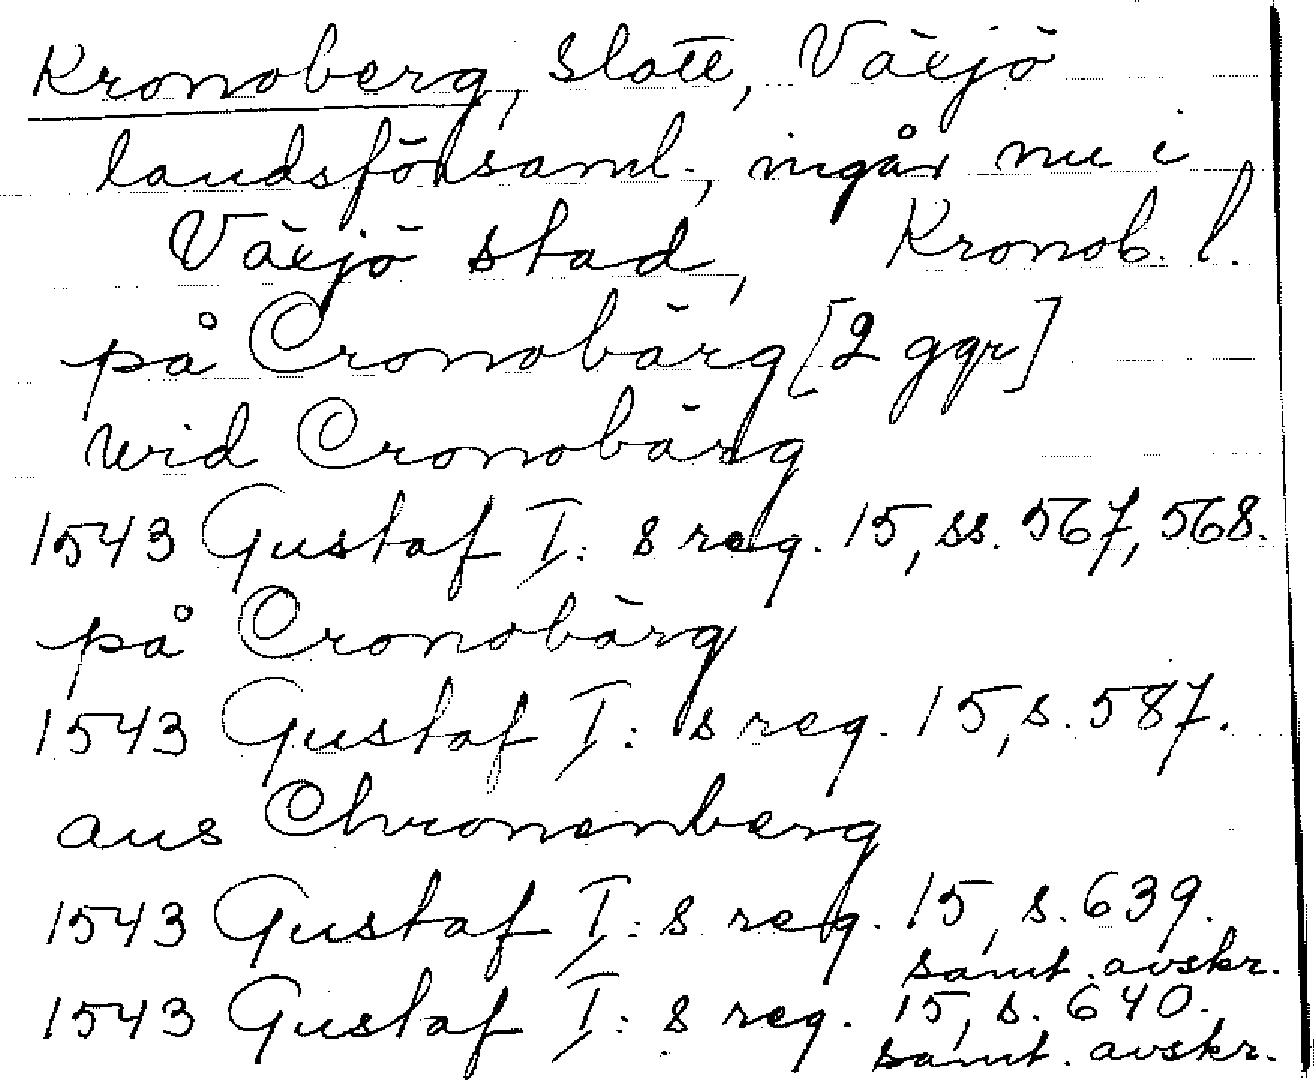 Kronoberg, slott, Växjö
landsförsaml., ingår nu i
Växjö stad, Kronob. l.
på Cronobärg [2 ggr]
wid Cronobärg
1543 Gustaf I: s reg. 15, ss. 567, 568.
på Cronobärg
1543 Gustaf I: s reg. 15, s. 587.
aus Chronenberg
1543 Gustaf I: s reg. 15, s. 639.
samt. avskr.
1543 Gustaf I: s reg. 15, s. 640.
samt. avskr.